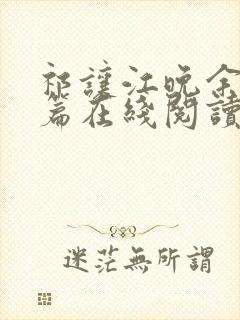 祁讓江晚余
篇在綫閱讀
迷茫無所謂